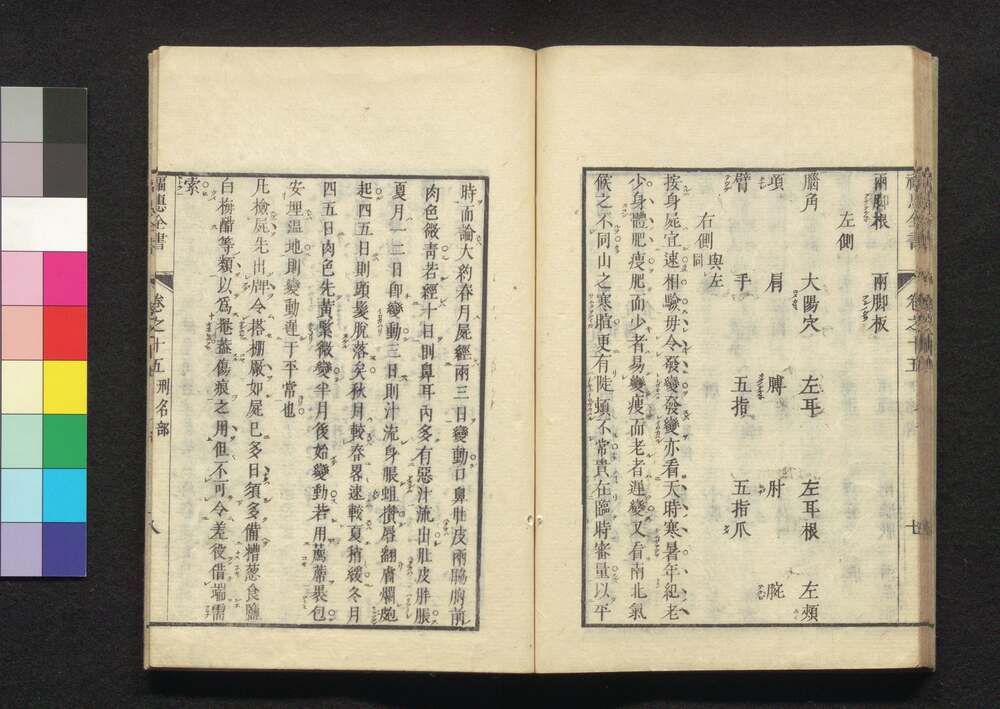 兩腳根 兩脚板
左側
腦角 太陽穴 左耳 左耳根 左頰
項 肩 膊 肘 腕
臂 手 五指 五指爪
右側與左同
按身屍宜速相驗毋令發變發變亦看天時寒暑年紀老
少身體肥瘦肥而少者易變瘦而老者遲變又看南北氣
候之不同山之寒暄更有陡頓不常貴在臨時審量以平
福惠全書 卷之十五 七
時而論大約春月屍經兩三日變動口鼻肚皮兩脇胸前
肉色微青若經十日則鼻耳內多有惡汁流出肚皮胖脹
夏月一二日卽變動三日則汁流身脹蛆攢唇翻膚爛皰
起四五日則頭髮脫落矣秋月較春畧速較夏稍緩冬月
四五日肉色先黃緊微變半月後始變動若用薦蓆裹包
安埋濕地則變動遲于平常也
凡檢屍先出牌令搭棚厰如屍已多日須多備糟葱食鹽
白梅醋等類以爲掩蓋傷痕之用但不可令差役借端需
索
福惠全書 卷之十五 刑名部 八